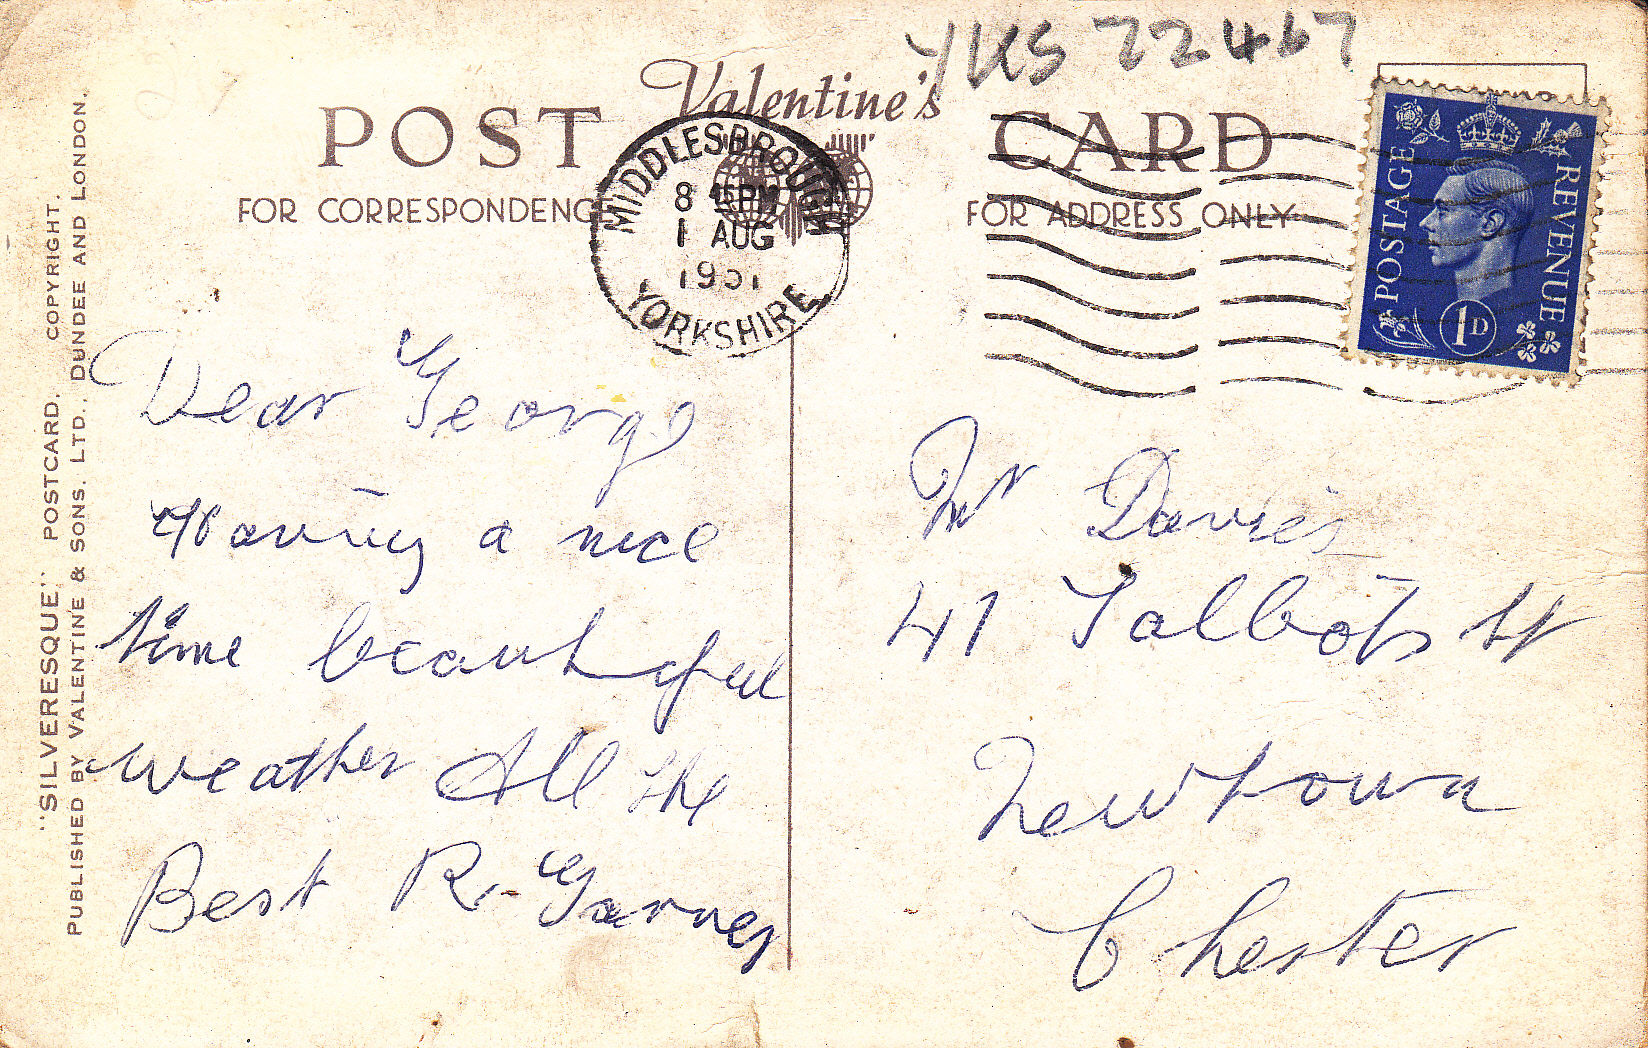 YKS 22467
Valentine's
POST CARD
FOR CORRESPONDENCE
FOR ADDRESS ONLY
MIDDLESBROUGH
8 45 PM
1 AUG
1951
YORKSHIRE
POSTAGE
REVENUE
1D
"SILVERESQUE" POSTCARD. COPYRIGHT.
PUBLISHED BY VALENTINE & SONS, LTD., DUNDEE AND LONDON.
Dear George
Having a nice
time beautiful
weather All the
Best R.
Mr Davies
41 Talbots St
Newtown
Chester